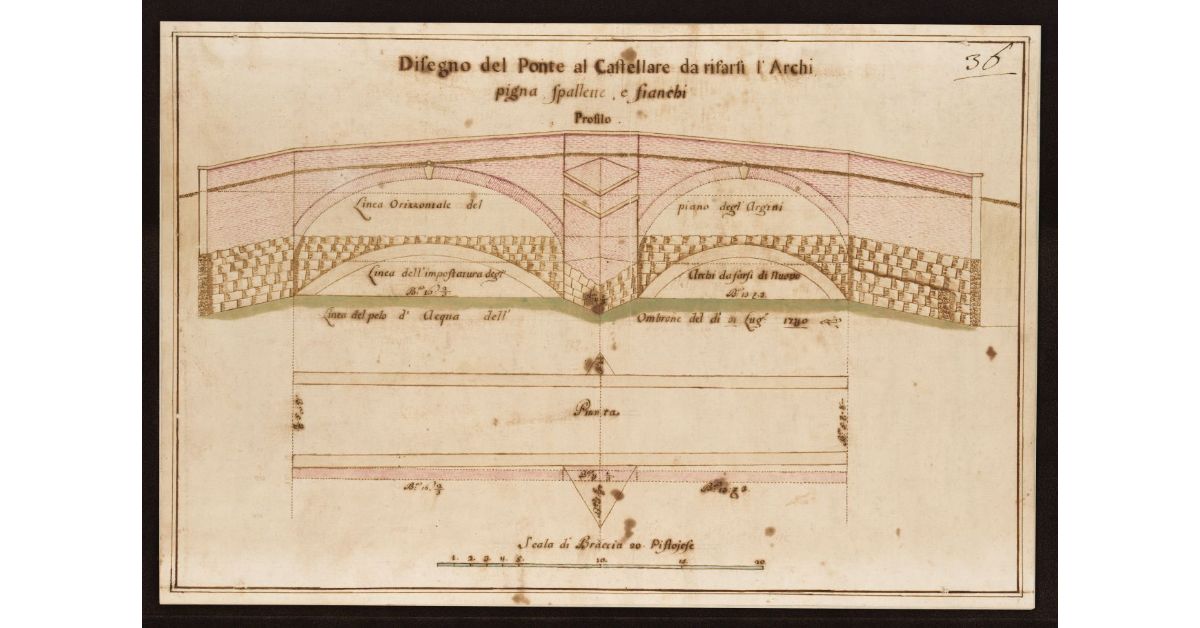 36
Disegno del Ponte al Castellare da rifarsi l'Archi
pigna spallette e fianchi
Profilo
Linea Orizzontale del piano degl'Argini
Linea dell'impostatura degl' Archi da farsi di Nuovo
Linea del pelo d'Acqua dell' Ombrone del dì 31 Lug.º 1740
Pianta
Scala di Braccia 20 Pistojese
1. 2. 3. 4. 5. 10. 15. 20.